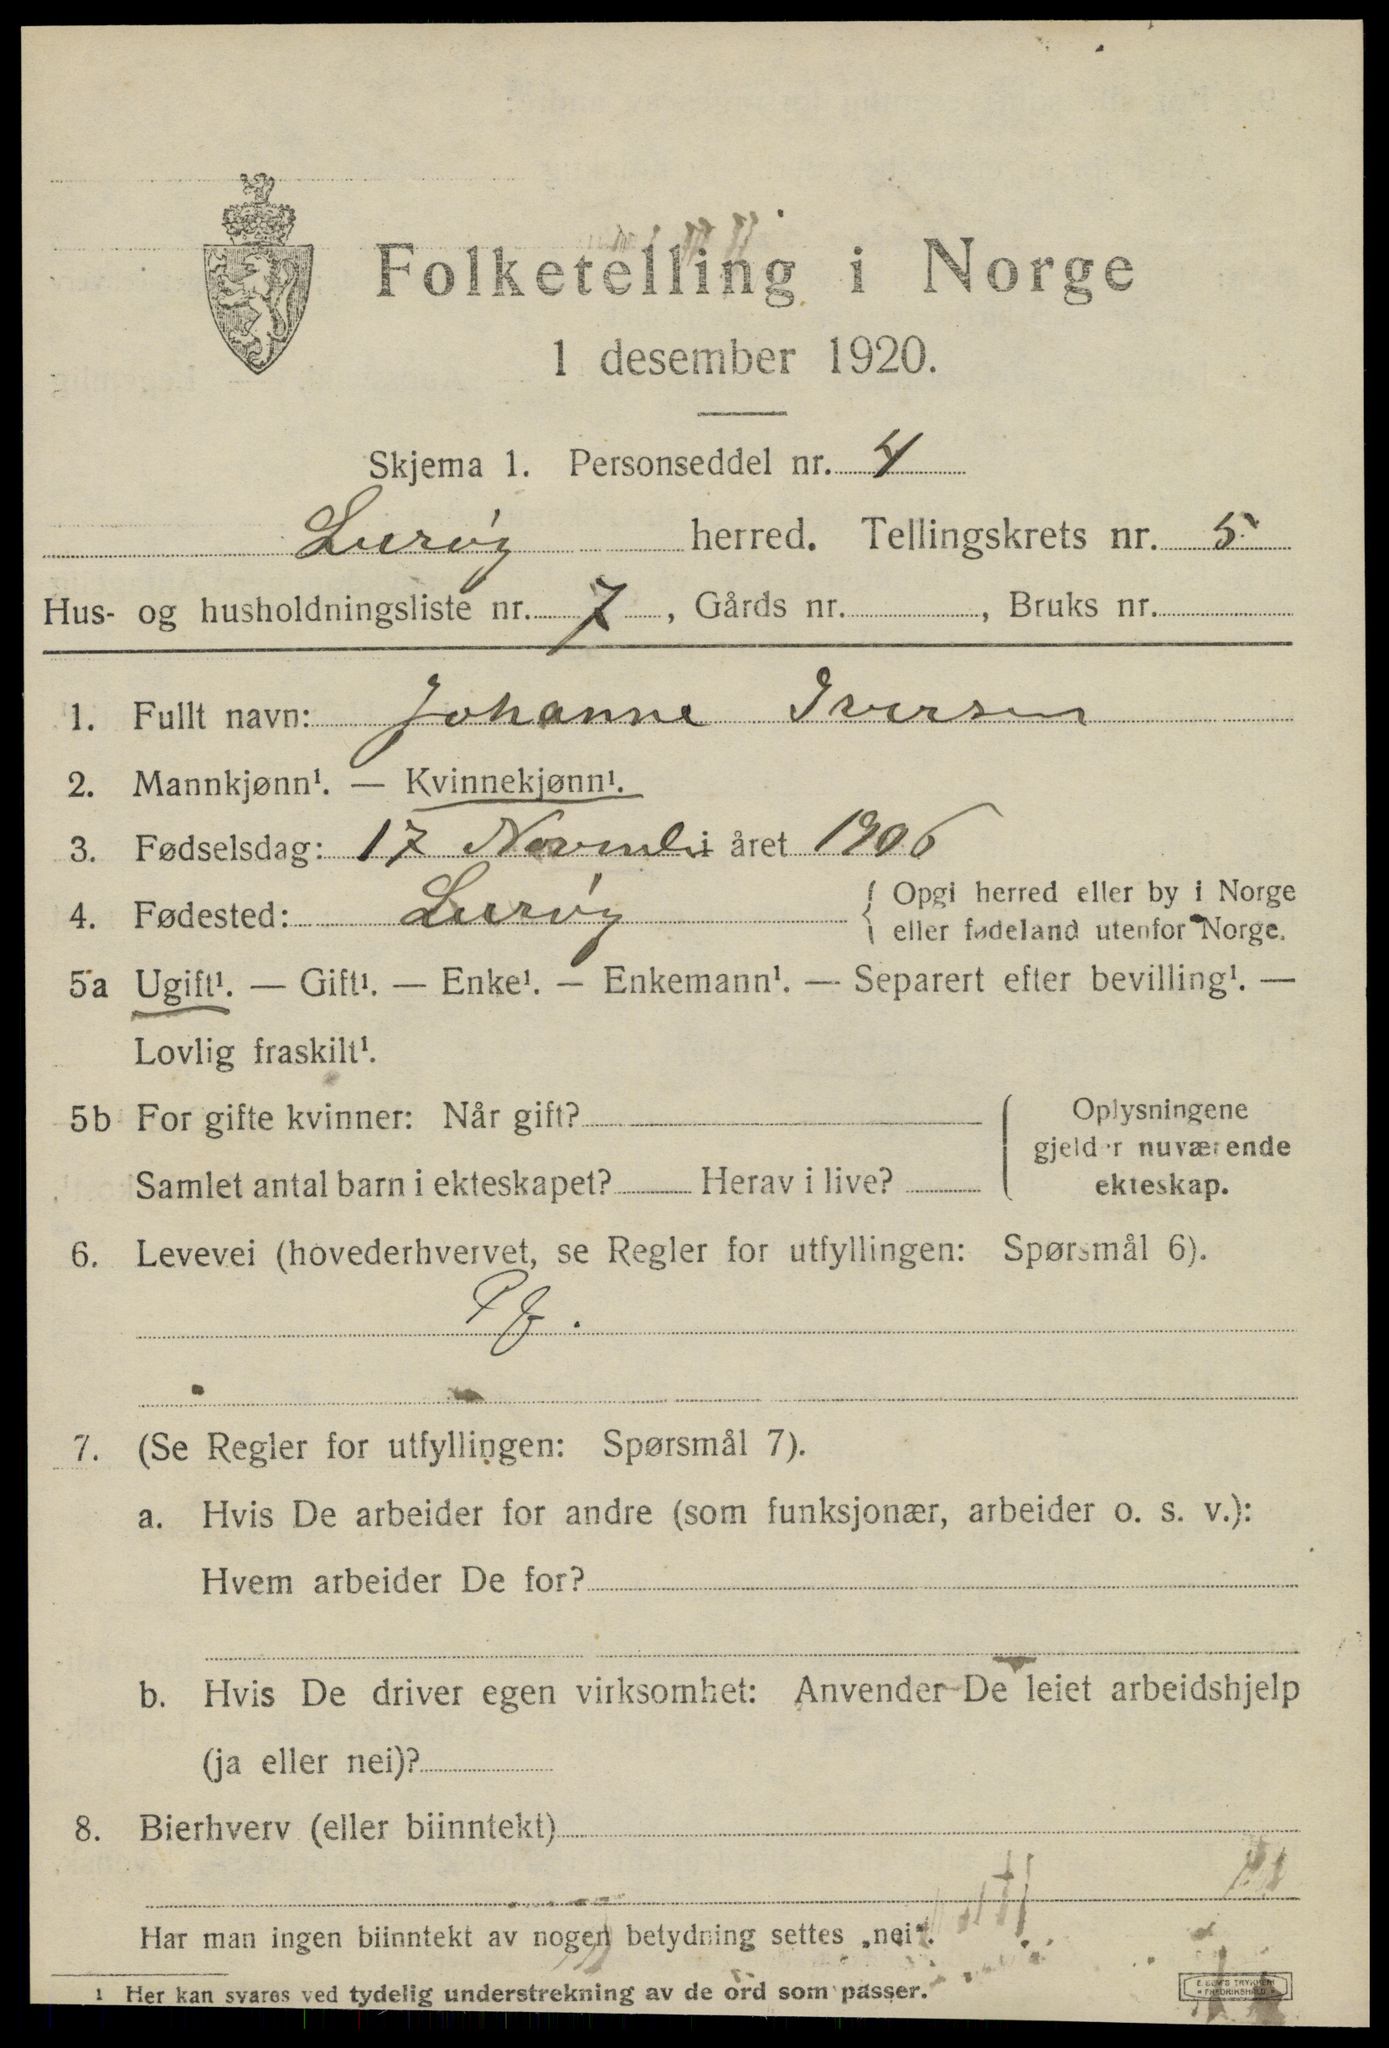 Folketelling i Norge
1 desember 1920.
Skjema 1. Personseddel nr. 4
Lurøy herred. Tellingskrets nr. 5
Hus- og husholdningsliste nr. 7, Gårds nr. , Bruks nr.
1. Fullt navn: Johanne Iversen
2. Mannkjønn¹. — Kvinnekjønn¹.
3. Fødselsdag: 17 Novemb i året 1906
4. Fødested: Lurøy { Opgi herred eller by i Norge
eller fødeland utenfor Norge.
5a Ugift¹. — Gift¹. — Enke¹. — Enkemann¹. — Separert efter bevilling¹. —
Lovlig fraskilt¹.
5b For gifte kvinner: Når gift?
Samlet antal barn i ekteskapet? Herav i live?
Oplysningene
gjelder nuværende
ekteskap.
6. Levevei (hovederhvervet, se Regler for utfyllingen: Spørsmål 6).
7. (Se Regler for utfyllingen: Spørsmål 7).
a. Hvis De arbeider for andre (som funksjonær, arbeider o. s. v.):
Hvem arbeider De for?
b. Hvis De driver egen virksomhet: Anvender De leiet arbeidshjelp
(ja eller nei)?
8. Bierhverv (eller biinntekt)
Har man ingen biinntekt av nogen betydning settes „nei".
¹ Her kan svares ved tydelig understrekning av de ord som passer.